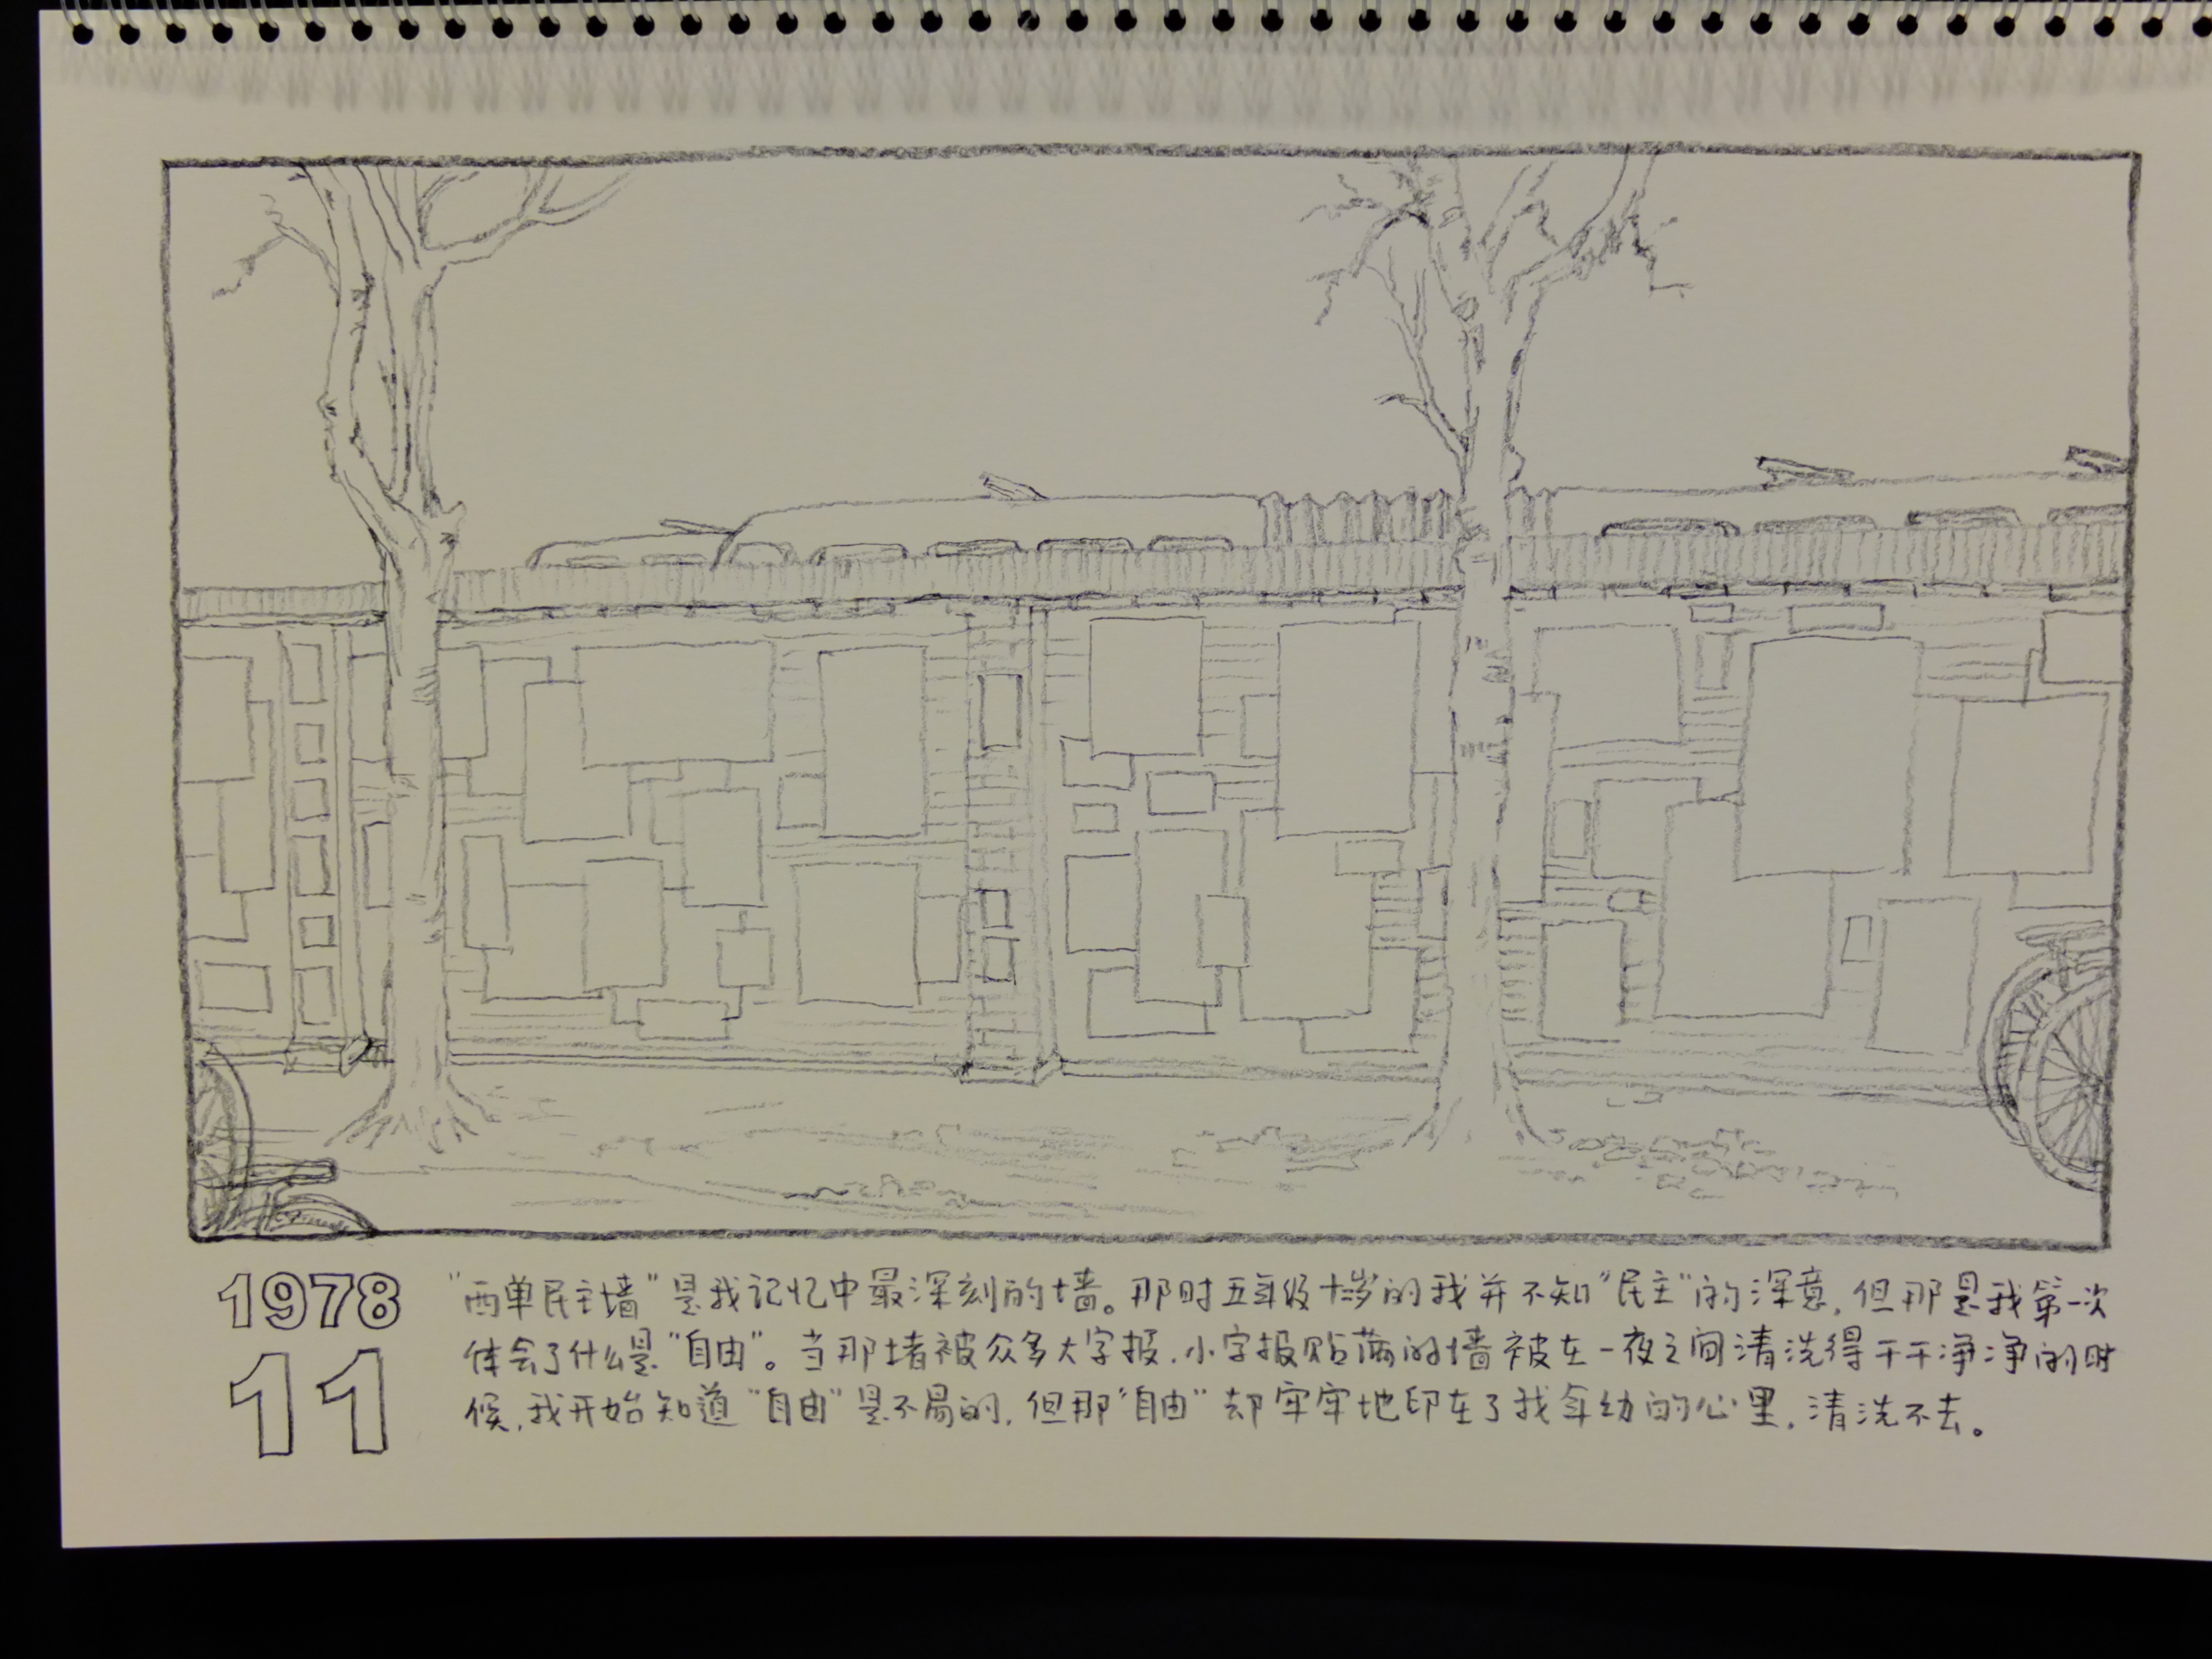 1978
11
"西单民主墙"是我记忆中最深刻的墙。那时五年级十岁的我并不知"民主"的深意，但那是我第一次
体会了什么是"自由"。当那堵被众多大字报、小字报贴满的墙被在一夜之间清洗得干干净净的时
候，我开始知道"自由"是不易的，但那"自由"却牢牢地印在了我年幼的心里，清洗不去。